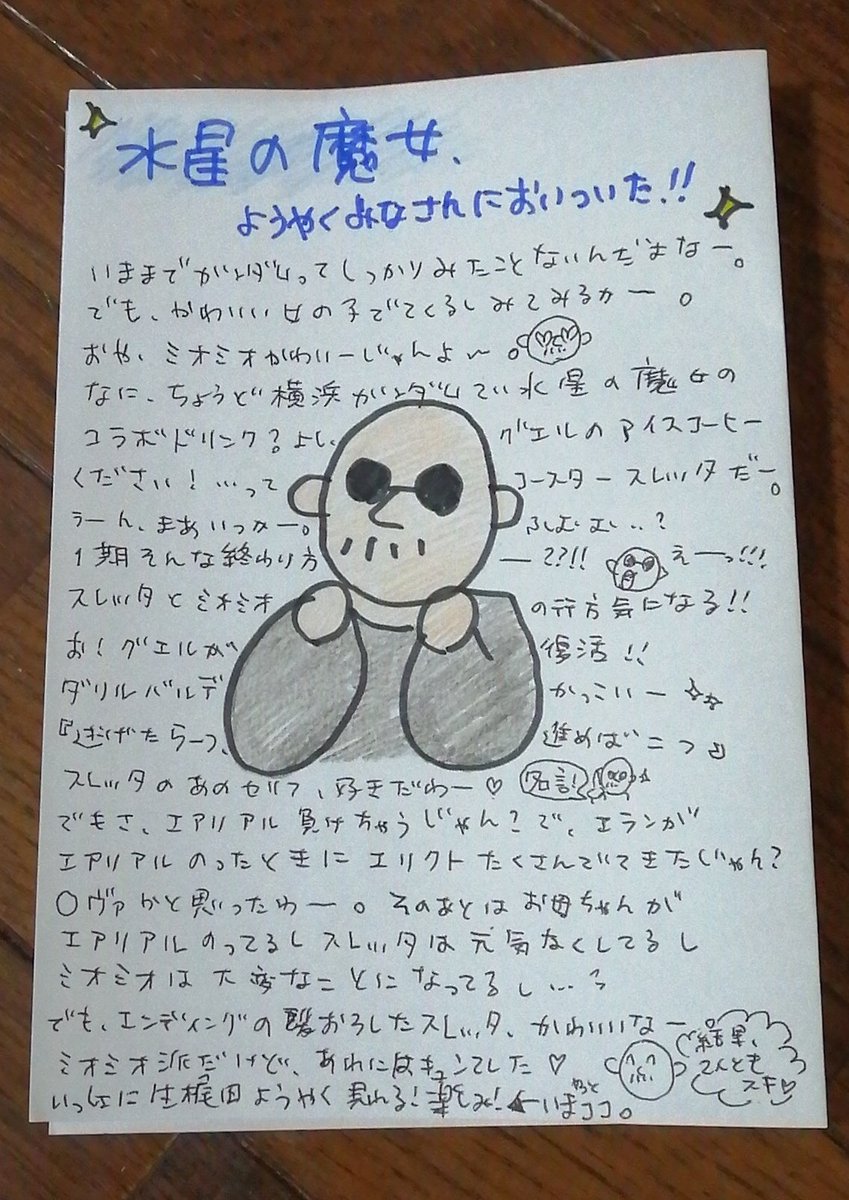 水星の魔女、
ようやくみなさんにおいついた!!
いままでガンダムってしっかりみたことないんだよなー。
でも、かわいい女の子でてくるしみてみるかー。
おや、ミオミオかわいーじゃんよ〜。
なに、ちょうど横浜ガンダムで水星の魔女の
コラボドリンク?よし グエルのアイスコーヒー
ください!…って コースタースレッタだー。
うーん、まあいっかー。 ふむむ…?
1期そんな終わり方 ー??!! えーっ!!!
スレッタとミオミオ の行方気になる!!
お!グエルが 復活!!
ダリルバルデ かっこいー
『逃げたら一つ、 進めば二つ』
スレッタのあのセリフ、好きだわー♡ 名言!
でもさ、エアリアル負けちゃうじゃん?で、エランが
エアリアルのったときにエリクトたくさんでてきたじゃん?
〇ヴァかと思ったわー。そのあとはお母ちゃんが
エアリアルのってるしスレッタは元気なくしてるし
ミオミオは大変なことになってるし…?
でも、エンディングの髪おろしたスレッタ、かわいいなー。
ミオミオ派だけど、あれにはキュンてした♡
結果、2人ともスキ♡
いっしょに生梶田ようやく見れる!楽しみ!←いまやっとココ。